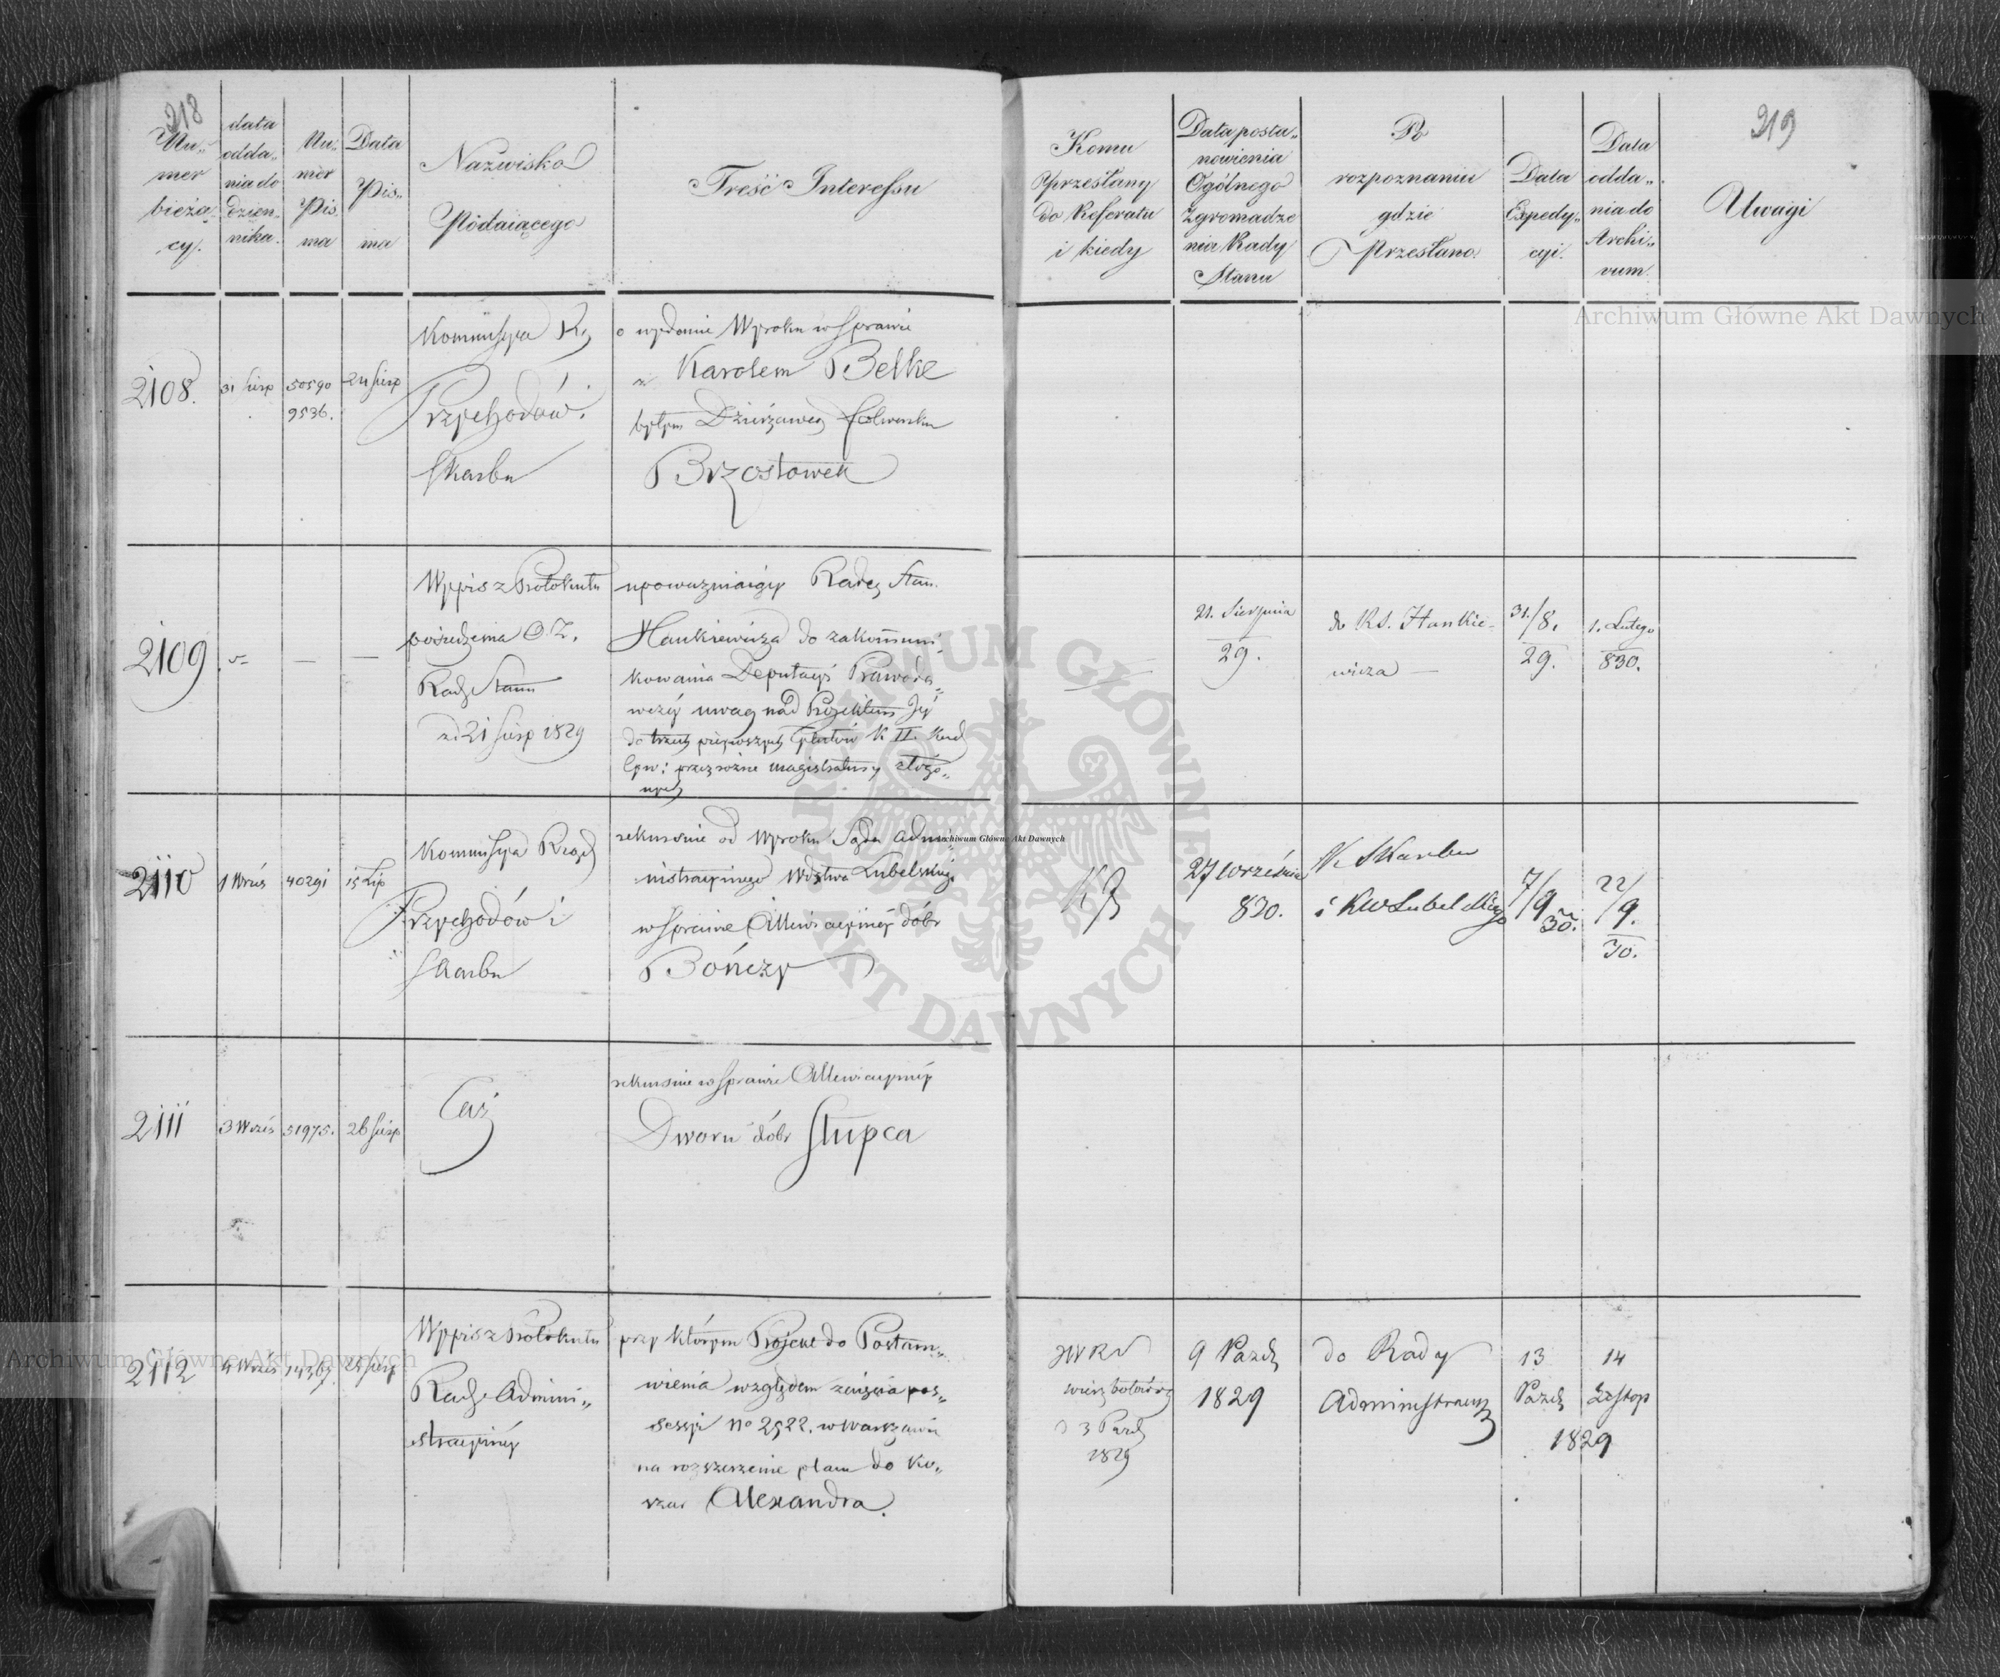 218
Nu-
mer
bieżą-
cy.
data
odda-
nia do
dzien-
nika.
Nu-
mer
Pis
ma
Data
Pis-
ma
Nazwisko
Podaiącego
Treść Interessu
219
Komu
przesłany
do Referatu
i kiedy
Data posta-
nowienia
Ogólnego
Zgromadze
nia Rady
Stanu
Po
rozpoznaniu
gdzie
Przesłano
Data
Expedy-
cyi.
Data
odda-
nia do
Archi-
vum.
Uwagi
2108.
31 Sierp
50590
9536.
24 Sierp
Kommissya Rz
Przychodów i
Skarbu
o wydanie Wyroku w sprawie
z Karolem Belke
byłym Dzierżawcą folwarku
Brzostowek
2109
—
—
Wypis z Protokułu
posiedzenia O. Z.
Rady Stanu
z d 21 Sierp 1829
upoważniaiący Radcę Stan.
Hankiewicza do zakommuni-
kowania Deputacyi Prawoda-
wczéy uwag nad Projektem Jéy
do trzech pierwszych tytułów K II. Kod
Cyw: przez różne magistratury złożo-
nych
21. Sierpnia
29.
do RS. Hankie-
wicza —
31./8.
29.
1. Lutego
830.
2110
1 Wrześ
40291
15 Lip
Kommissya Rząd
Przychodów i
Skarbu
rekursnie od Wyroku Sądu Admi-
nistracyinego Wdztwa Lubelskiego
w sprawie Allewiacyinéy dóbr
Bończy
27 września
830.
K. Skarbu
i KW Lubelskiego
7/9
30.
22/9.
30.
2111
3 Wrześ
51975.
26 Sierp
Taż
rekursnie w sprawie Allewiacyinéy
Dworu dóbr Słupca
2112
4 Wrześ
25 Sierp
Wypis z Protokułu
Rady Admini-
stracyinéy
przy którym Projekt do Postano-
wienia względem zaięcia pos-
sessyi No 2522. w Warszawie
na rozszerzenie placu do Ko-
szar Alexandra.
3 Pazd
1829
9 Pazdz
1829
do Rady
Administracyi
13
Pazdz
14
Listop
1829
Archiwum Główne Akt Dawnych
Archiwum Główne Akt Dawnych
Archiwum Główne Akt Dawnych
ARCHIWUM GŁÓWNE AKT DAWNYCH